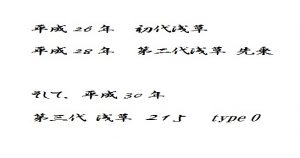 平成26年　初代浅草
平成28年　第二代浅草 先乗
そして、平成30年
第三代 浅草　215　type 0